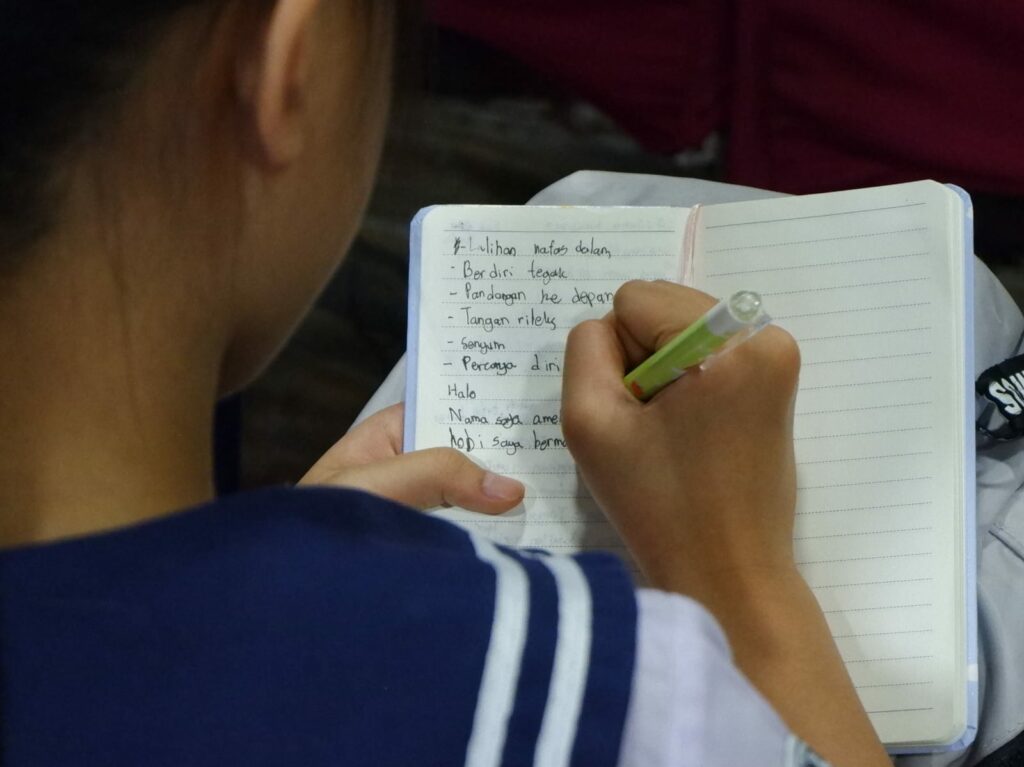 - Latihan nafas dalam
- Berdiri tegak
- Pandangan ke depan
- Tangan rileks
- senyum
- Percaya diri
Halo
Nama saya ame
hobi saya berma